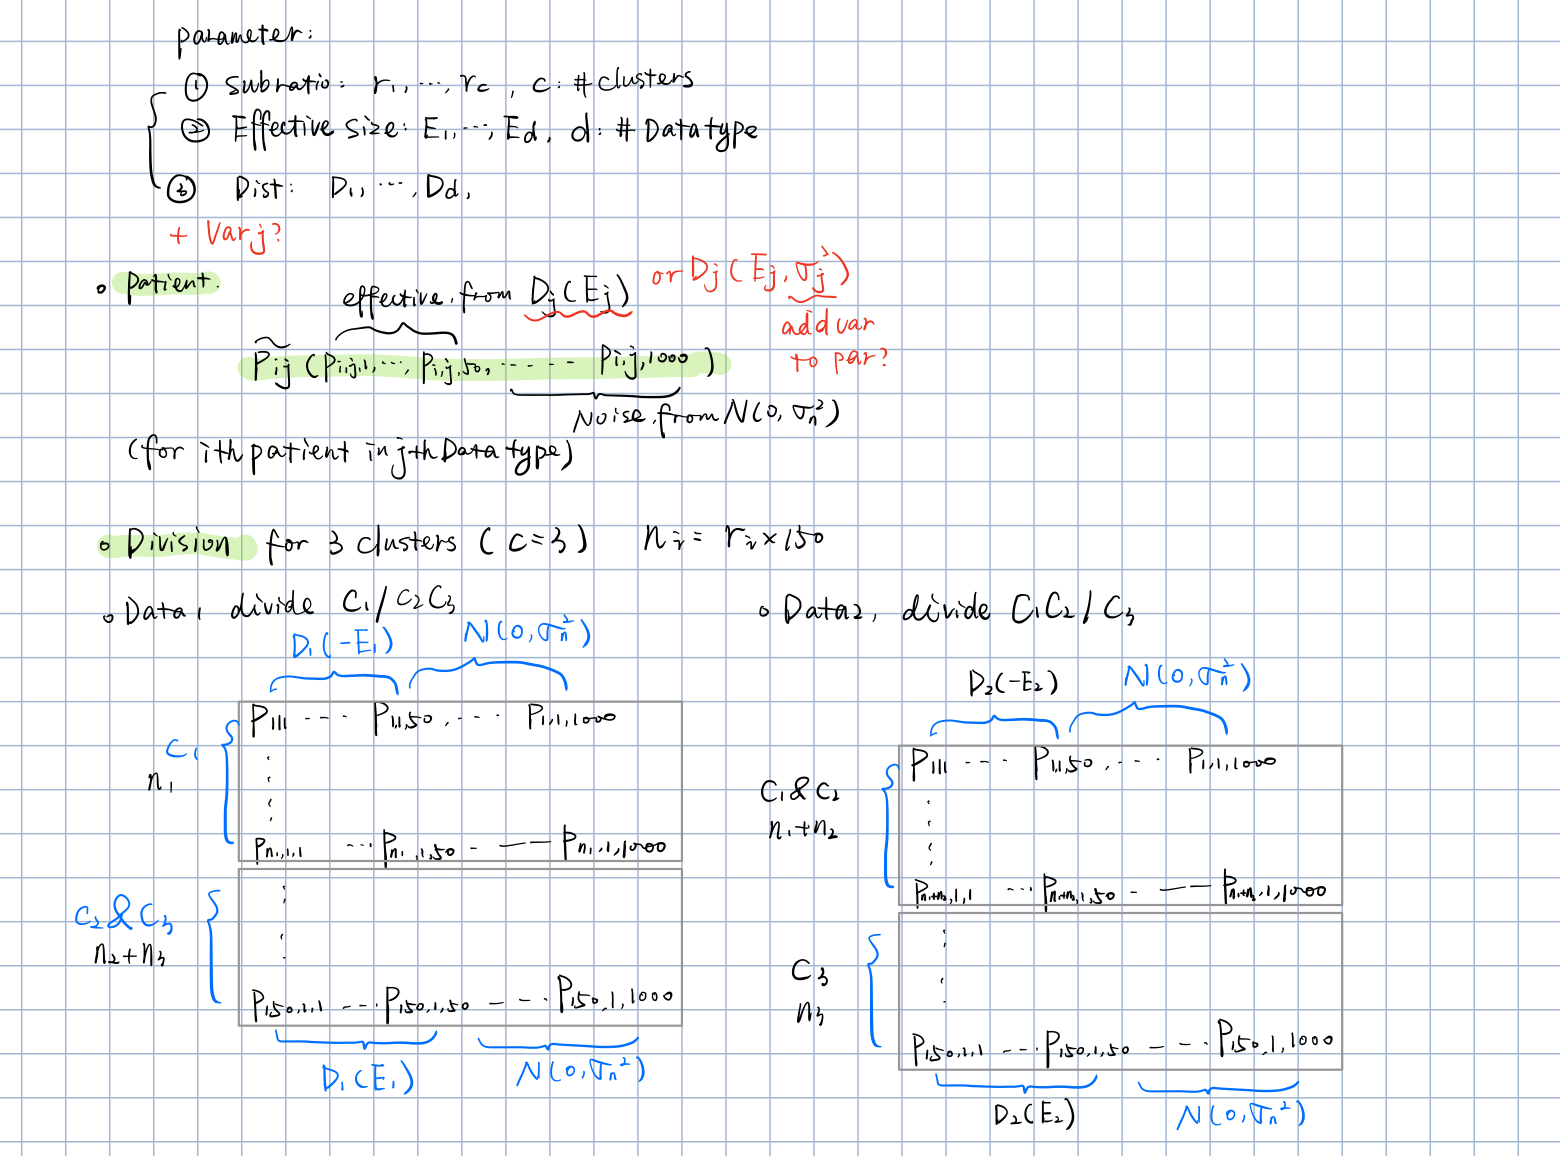 parameter:
① Subratio: r₁, ⋯, r_c , c: # clusters
② Effective size: E₁, ⋯, E_d, d: # Datatype
③ Dist: D₁, ⋯, D_d,
+ Var j?
• patient.
effective, from D_j(E_j) or D_j(E_j, σ_j²)
add var
to par?
P_ij (P_i,j,1, ⋯, P_i,j,50, ----- P_i,j,1000)
Noise, from N(0, σ_n²)
(for ith patient in jth Data type)
• Division for 3 clusters (c=3) n_i = r_i × 150
• Data1, divide C₁/C₂C₃
D₁(-E₁) N(0, σ_n²)
C₁
n₁
P₁₁₁ --- P₁,₁,₅₀ . --- P₁,₁,₁₀₀₀
P_n₁,1,1 --- P_n₁,1,50 - —— P_n₁,1,1000
C₂&C₃
n₂+n₃
P₁₅₀,₁,₁ --- P₁₅₀,₁,₅₀ -- -- P₁₅₀,₁,₁₀₀₀
D₁(E₁) N(0, σ_n²)
• Data2, divide C₁C₂/C₃
D₂(-E₂) N(0, σ_n²)
C₁&C₂
n₁+n₂
P₁₁₁ --- P₁,₁,₅₀ . --- P₁,₁,₁₀₀₀
P_n₁+n₂,1,1 --- P_n₁+n₂,1,50 - —— P_n₁+n₂,1,1000
C₃
n₃
P₁₅₀,₁,₁ --- P₁₅₀,₁,₅₀ -- -- P₁₅₀,₁,₁₀₀₀
D₂(E₂) N(0, σ_n²)